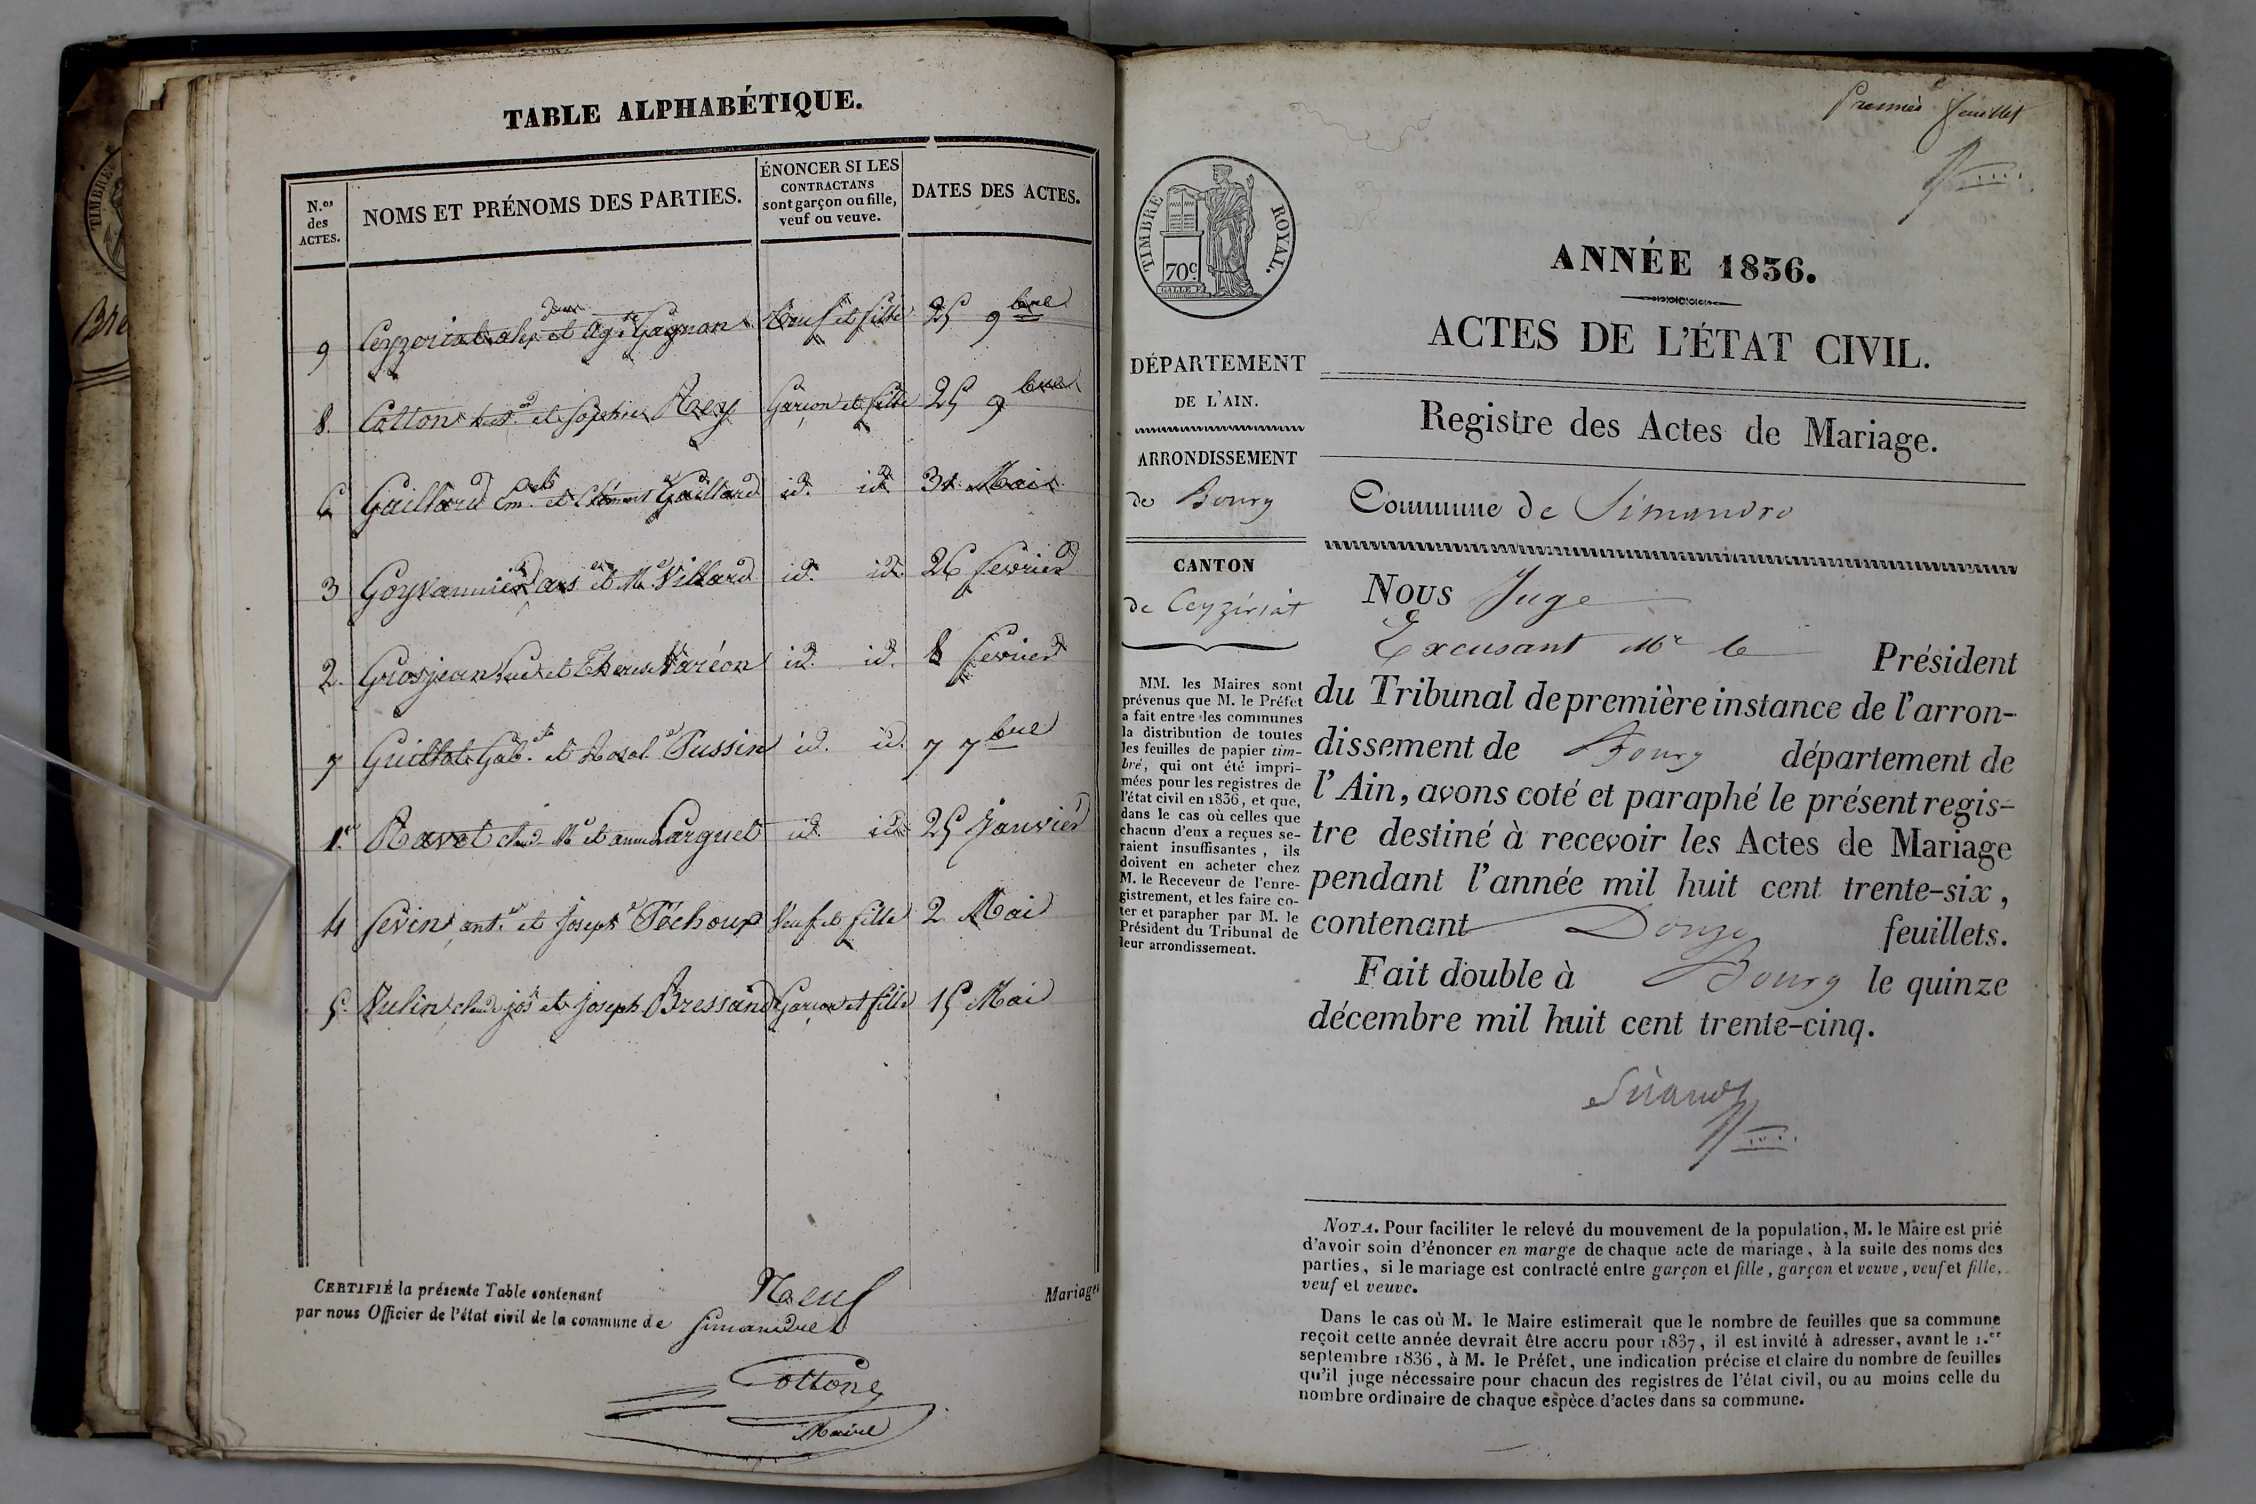 TIMBRE
Bre
TABLE ALPHABÉTIQUE.
N.os des ACTES.
NOMS ET PRÉNOMS DES PARTIES.
ÉNONCER SI LES CONTRACTANS sont garçon ou fille, veuf ou veuve.
DATES DES ACTES.
9 Ceyzeriat alex. et Ag. Gagnon Veuf et fille 25 9bre
8. Cotton et Sophie Rey Garçon et fille 25 9bre
6 Gaillard et Clément Gaillard id. id. 31 Mai
3 Goyvannier et Villard id. id. 26 février
2. Grosjean et Therese Varéon id. id. 8 février
7 Guillot Gab. et Rosal. Pussin id. id. 7 7bre
1.er Ravet claud. et anne Larguet id. id. 25 Janvier
4 Sevin ant. et Joseph Péchoux Veuf et fille 2 Mai
5. Vulin claude jos et joseph Bressand Garçon et fille 15 Mai
CERTIFIÉ la présente Table contenant Neuf Mariages
par nous Officier de l'état civil de la commune de Simandre
Cottong
Maire
Premier feuillet
TIMBRE ROYAL.
70c
ANNÉE 1836.
ACTES DE L'ÉTAT CIVIL.
Registre des Actes de Mariage.
Commune de Simandre
DÉPARTEMENT
DE L'AIN.
ARRONDISSEMENT
de Bourg
CANTON
de Ceyzériat
MM. les Maires sont
prévenus que M. le Préfet
a fait entre les communes
la distribution de toutes
les feuilles de papier tim-
bré, qui ont été impri-
mées pour les registres de
l'état civil en 1836, et que,
dans le cas où celles que
chacun d'eux a reçues se-
raient insuffisantes, ils
doivent en acheter chez
M. le Receveur de l'enre-
gistrement, et les faire co-
ter et parapher par M. le
Président du Tribunal de
leur arrondissement.
Nous Juge
Excusant Mr le Président
du Tribunal de première instance de l'arron-
dissement de Bourg département de
l'Ain, avons coté et paraphé le présent regis-
tre destiné à recevoir les Actes de Mariage
pendant l'année mil huit cent trente-six,
contenant Douze feuillets.
Fait double à Bourg le quinze
décembre mil huit cent trente-cinq.
Sirand
NOTA. Pour faciliter le relevé du mouvement de la population, M. le Maire est prié
d'avoir soin d'énoncer en marge de chaque acte de mariage, à la suite des noms des
parties, si le mariage est contracté entre garçon et fille, garçon et veuve, veuf et fille,
veuf et veuve.
Dans le cas où M. le Maire estimerait que le nombre de feuilles que sa commune
reçoit cette année devrait être accru pour 1837, il est invité à adresser, avant le 1.er
septembre 1836, à M. le Préfet, une indication précise et claire du nombre de feuilles
qu'il juge nécessaire pour chacun des registres de l'état civil, ou au moins celle du
nombre ordinaire de chaque espèce d'actes dans sa commune.